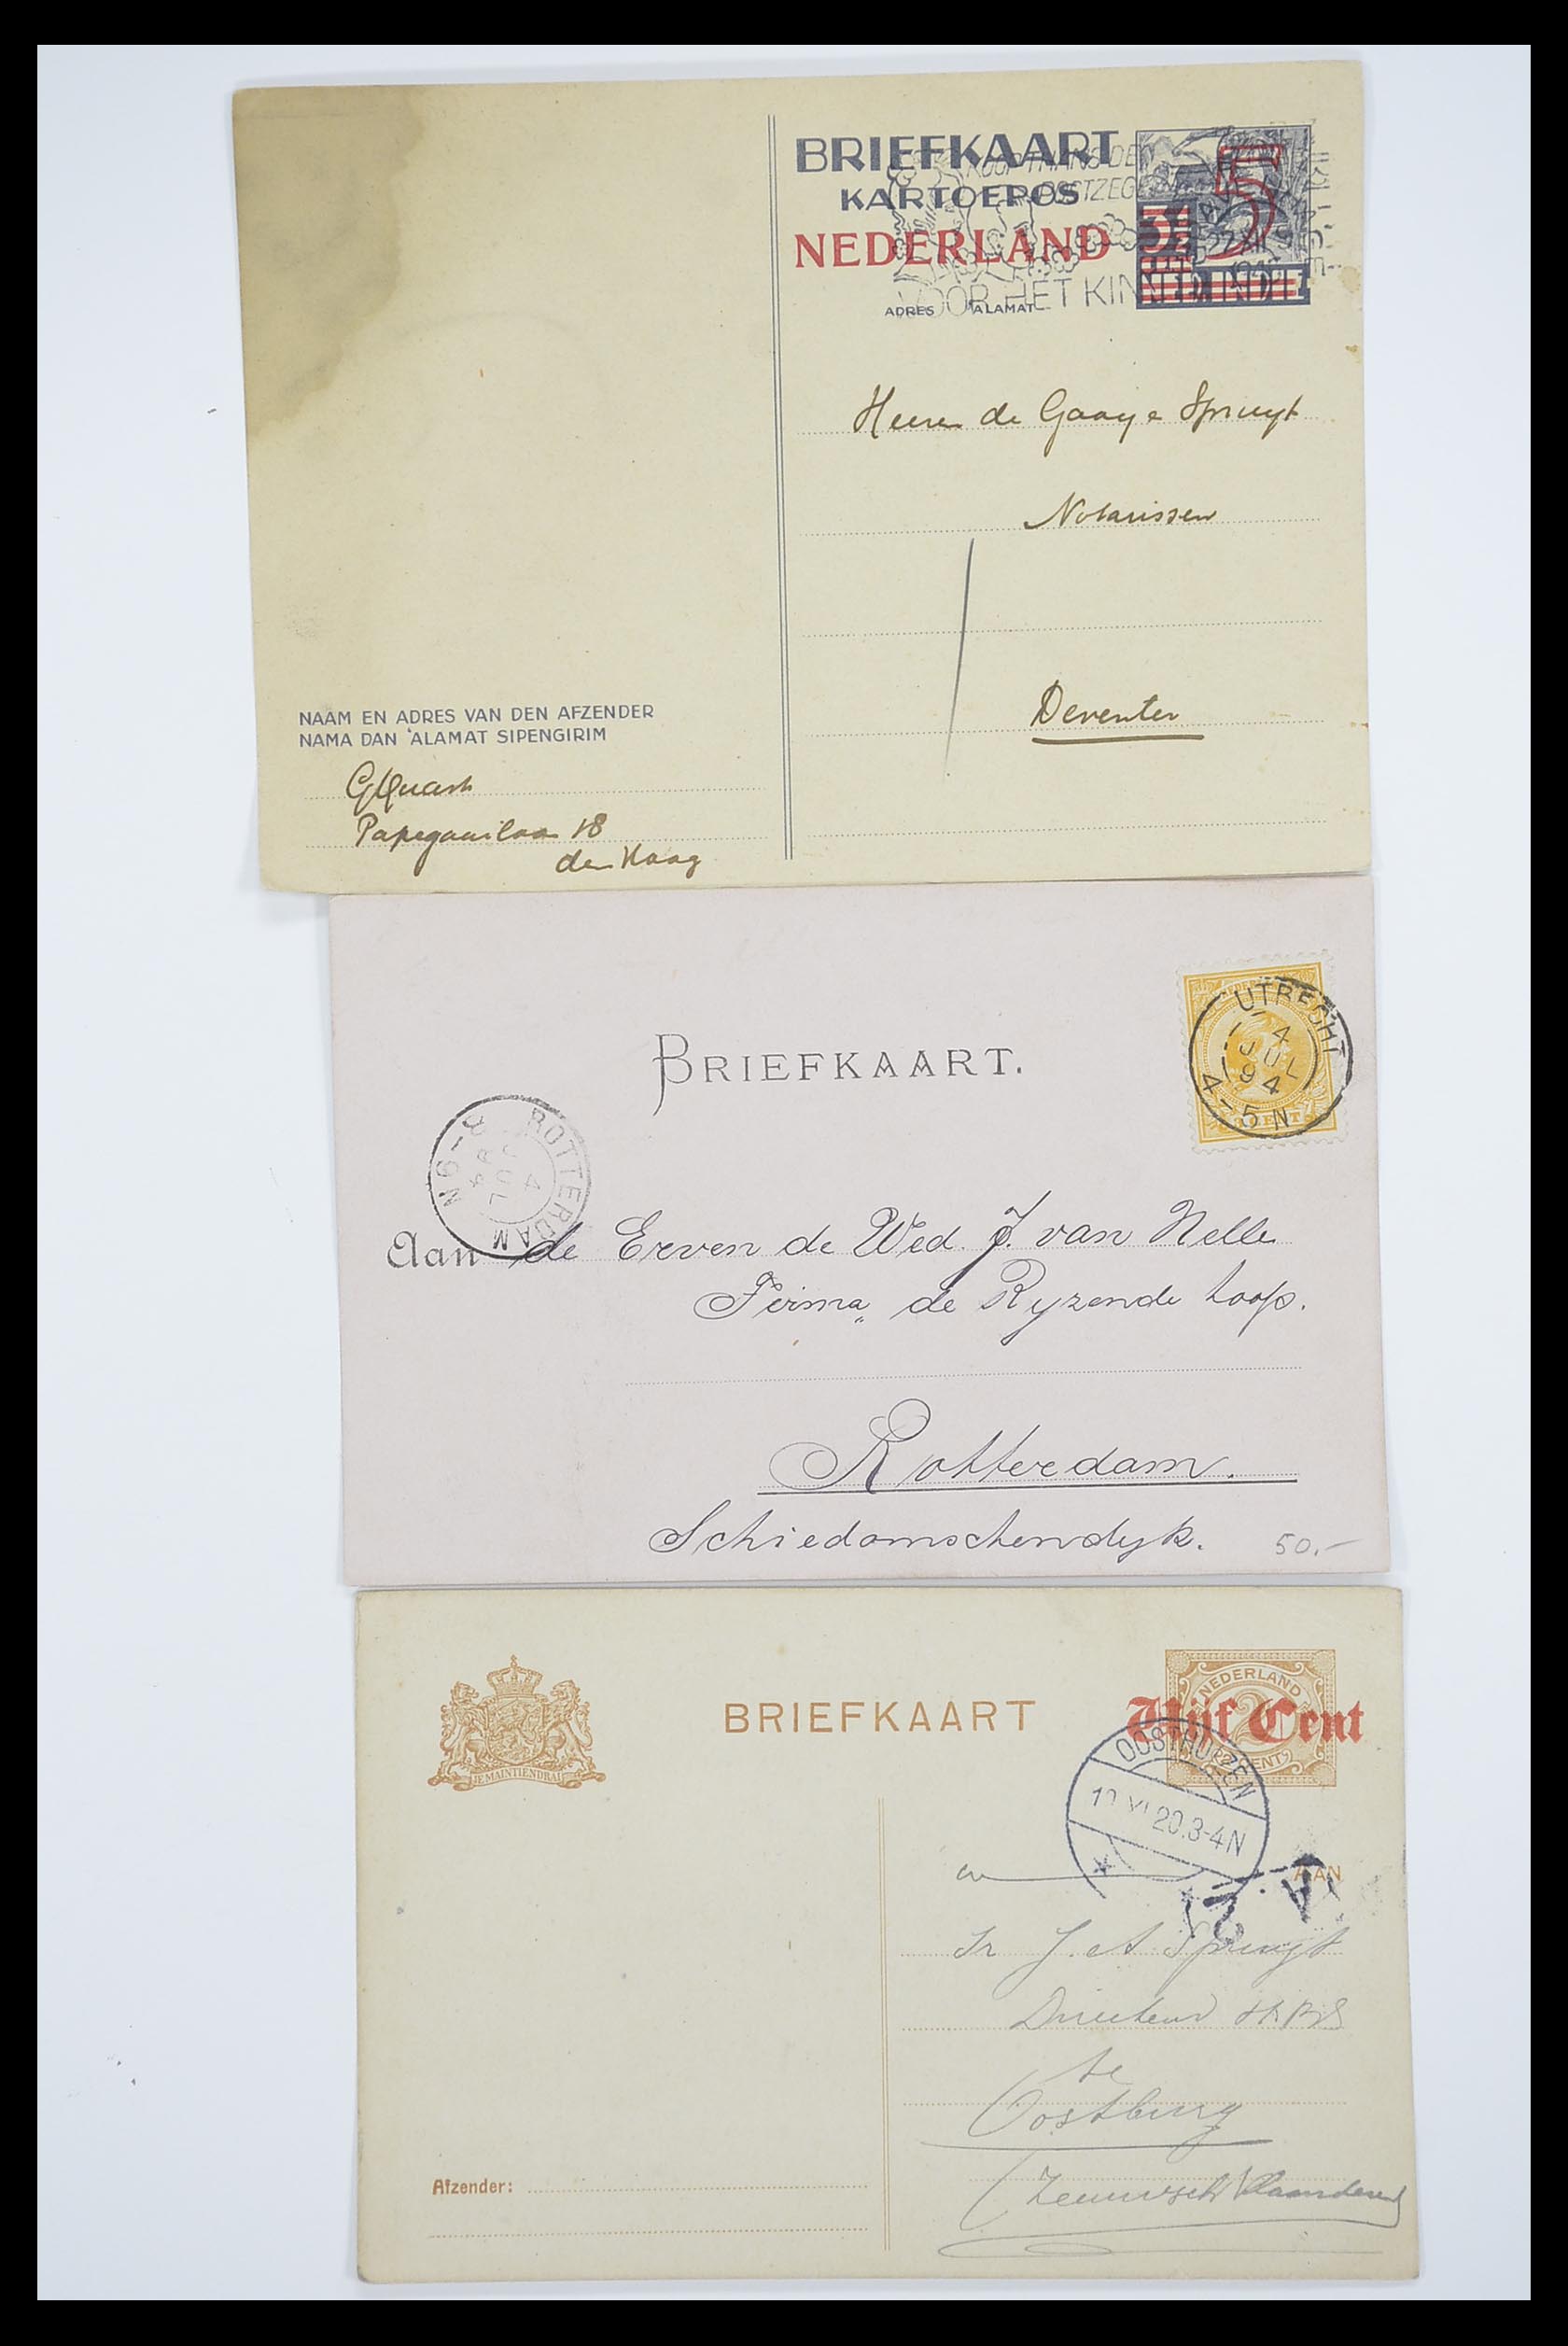 BRIEFKAART
KARTOEPOS
NEDERLAND
KOOP THANS DE
POSTZEGE
VOOR HET KIN
5
3½
NED. INDIE
22 XII
ADRES 'ALAMAT
Heeren de Gaay e Spruyt
Notarissen
Deventer
NAAM EN ADRES VAN DEN AFZENDER
NAMA DAN 'ALAMAT SIPENGIRIM
Papegaailaan 18
den Haag
BRIEFKAART.
UTRECHT
4
JUL
94
4-5N
ROTTERDAM
4
JUL
94
8-9N
Aan de Erven de Wed. J. van Nelle
Firma „de Ryzende hoop.
Rotterdam.
Schiedamschendyk.
50.-
JE MAINTIENDRAI
BRIEFKAART
NEDERLAND
2½ CENT
Vijf Cent
OOSTHUIZEN
XI 20.3-4N
AAN
Ir J. A. Spruyt
Directeur H.B.S
te
Oostburg
(Zeeuwsch Vlaanderen)
Afzender: